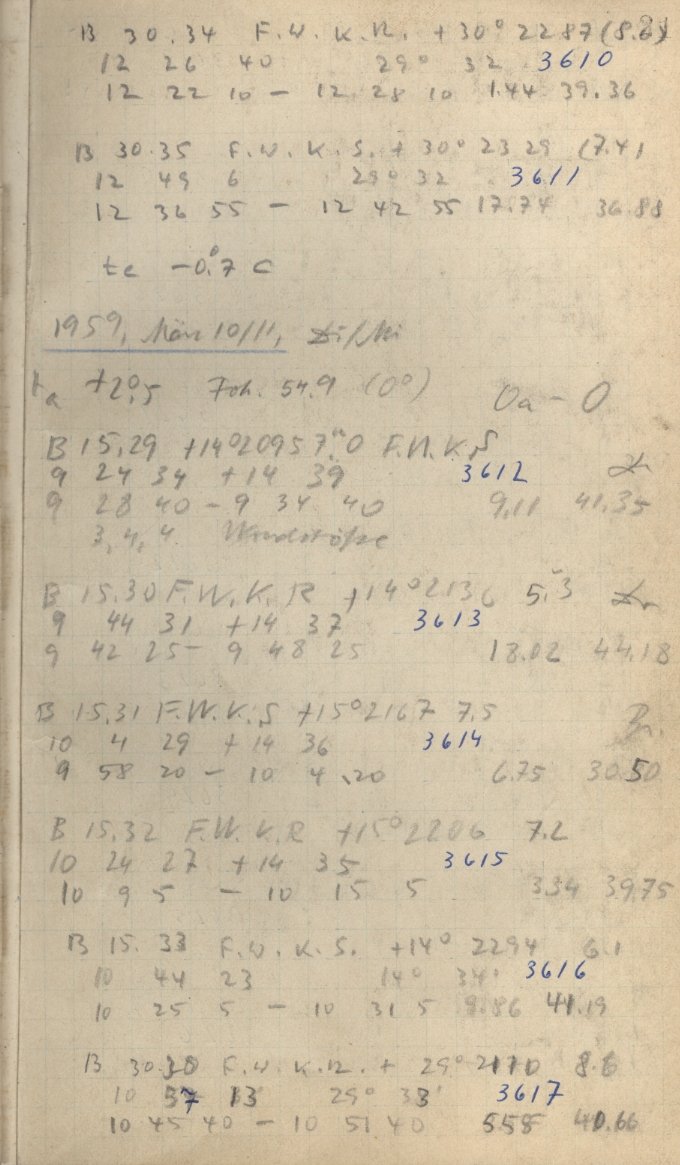 B 30.34 F.W.K.R. +30° 2287 (8.6)
12 26 40 29° 32 3610
12 22 10 – 12 28 10 1.44 39.36
B 30.35 F.W.K.S. + 30° 2329 (7.4)
12 49 6 29° 32 3611
12 36 55 – 12 42 55 17.74 36.88
te –0.°7 C
1959, März 10/11, Di/Mi
ta +2°,5 Foh. 54.9 (0°) Oa – O
B 15.29 +14°2095 7.ᵐ0 F.W.K.S
9 24 34 +14 39 3612
9 28 40 – 9 34 40 9.11 41.35
3, 4, 4 Windstöße
B 15.30 F.W.K.R +14°2136 5.3
9 44 31 +14 37 3613
9 42 25 – 9 48 25 18.02 44.18
B 15.31 F.W.K.S +15°2167 7.5 Br.
10 4 29 +14 36 3614
9 58 20 – 10 4 20 6.75 30.50
B 15.32 F.W.K.R +15° 2206 7.2
10 24 27 +14 35 3615
10 9 5 – 10 15 5 3.34 39.75
B 15.33 F.W.K.S. +14° 2294 6.1
10 44 23 14° 34' 3616
10 25 5 – 10 31 5 9.86 41.19
B 30.30 F.W.K.R. + 29° 2110 8.6
10 57 13 29° 33' 3617
10 45 40 – 10 51 40 5.58 40.66